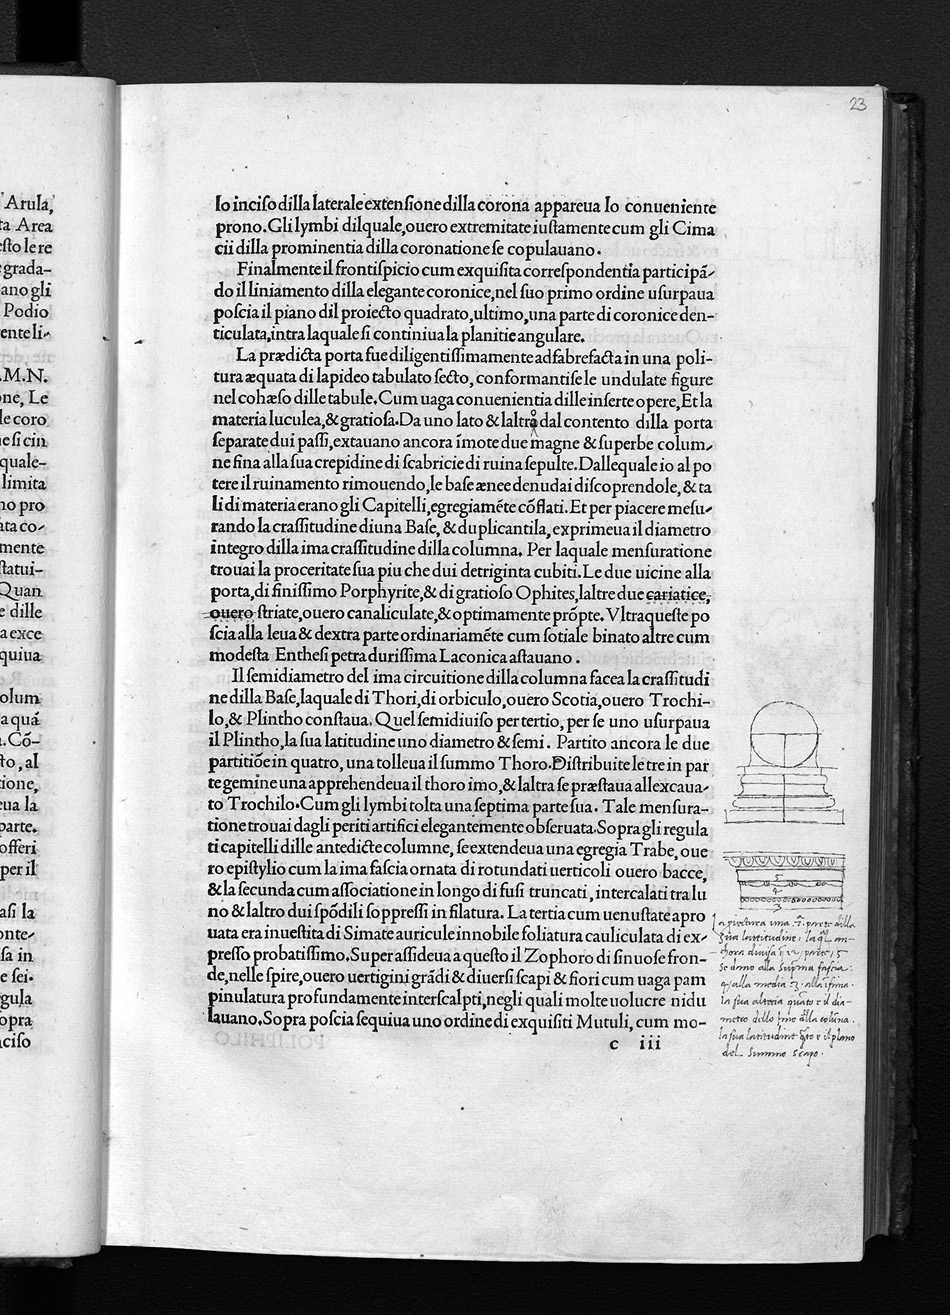 23
Arula,
ta Area
sto le re
grada-
ano gli
Podio
ente li-
.M.N.
one, Le
le coro
ne si cin
quale-
limita
no pro
ata co-
mente
statui-
Quan
e dille
a exce
quiua
olum
a quá
. Cō-
sto, al
tione,
eua la
parte.
offeri
per il
asi la
onte-
sa in
e sei-
gula
opra
nciso
lo inciſo dilla laterale extenſione dilla corona appareua lo conueniente
prono. Gli lymbi dilquale, ouero extremitate iuſtamente cum gli Cima
cii dilla prominentia dilla coronatione ſe copulauano.
Finalmente il frontiſpicio cum exquiſita correſpondentia participã-
do il liniamento dilla elegante coronice, nel ſuo primo ordine uſurpaua
poſcia il piano dil proiecto quadrato, ultimo, una parte di coronice den-
ticulata, intra laquale ſi continiua la planitie angulare.
La prædicta porta fue diligentiſſimamente adfabrefacta in una poli-
tura æquata di lapideo tabulato ſecto, conformantiſe le undulate figure
nel cohæſo dille tabule. Cum uaga conuenientia dille inſerte opere, Et la
materia luculea, & gratioſa. Da uno lato & laltro dal contento dilla porta
ſeparate dui paſſi, extauano ancora ímote due magne & ſuperbe colum-
ne fina alla ſua crepidine di ſcabricie di ruina ſepulte. Dallequale io al po
tere il ruinamento rimouendo, le baſe ænee denudai diſcoprendole, & ta
li di materia erano gli Capitelli, egregiaméte cõflati. Et per piacere meſu-
rando la craſſitudine di una Baſe, & duplicantila, exprimeua il diametro
integro dilla ima craſſitudine dilla columna. Per laquale menſuratione
trouai la proceritate ſua piu che dui detriginta cubiti. Le due uicine alla
porta, di finiſſimo Porphyrite, & di gratioſo Ophites, laltre due cariatice,
ouero ſtriate, ouero canaliculate, & optimamente prõpte. Vltra queſte po
ſcia alla leua & dextra parte ordinariaméte cum ſotiale binato altre cum
modeſta Entheſi petra duriſſima Laconica aſtauano.
Il ſemidiametro del ima circuitione dilla columna facea la craſſitudi
ne dilla Baſe, laquale di Thori, di orbiculo, ouero Scotia, ouero Trochi-
lo, & Plintho conſtaua. Quel ſemidiuiſo per tertio, per ſe uno uſurpaua
il Plintho, la ſua latitudine uno diametro & ſemi. Partito ancora le due
partitiõe in quatro, una tolleua il ſummo Thoro. Diſtribuite le tre in par
te gemine una apprehendeua il thoro imo, & laltra ſe præſtaua allexcaua-
to Trochilo. Cum gli lymbi tolta una ſeptima parte ſua. Tale menſura-
tione trouai dagli periti artifici elegantemente obſeruata. Sopra gli regula
ti capitelli dille antedicte columne, ſe extendeua una egregia Trabe, oue
ro epiſtylio cum la ima faſcia ornata di rotundati uerticoli ouero bacce,
& la ſecunda cum aſſociatione in longo di fuſi truncati, intercalati tra lu
no & laltro dui ſpõdili ſoppreſſi in filatura. La tertia cum uenuſtate apro
uata era inueſtita di Simate auricule in nobile foliatura cauliculata di ex-
preſſo probatiſſimo. Super aſſideua a queſto il Zophoro di ſinuoſe fron-
de, nelle ſpire, ouero uertigini grãdi & diuerſi ſcapi & fiori cum uaga pam
pinulatura profundamente interſcalpti, negli quali molte uolucre nidu
lauano. Sopra poſcia ſequiua uno ordine di exquiſiti Mutuli, cum mo-
c iii
5
4
3
la
una .7. parte dilla
sua latitudine.
diuisa
parte, 5
se dano alla suprma fascia.
4 alla media 3. alla
la sua
e il dia-
metro dello imo dlla colūna.
la sua latitudine
e il plano
del summo scapo.